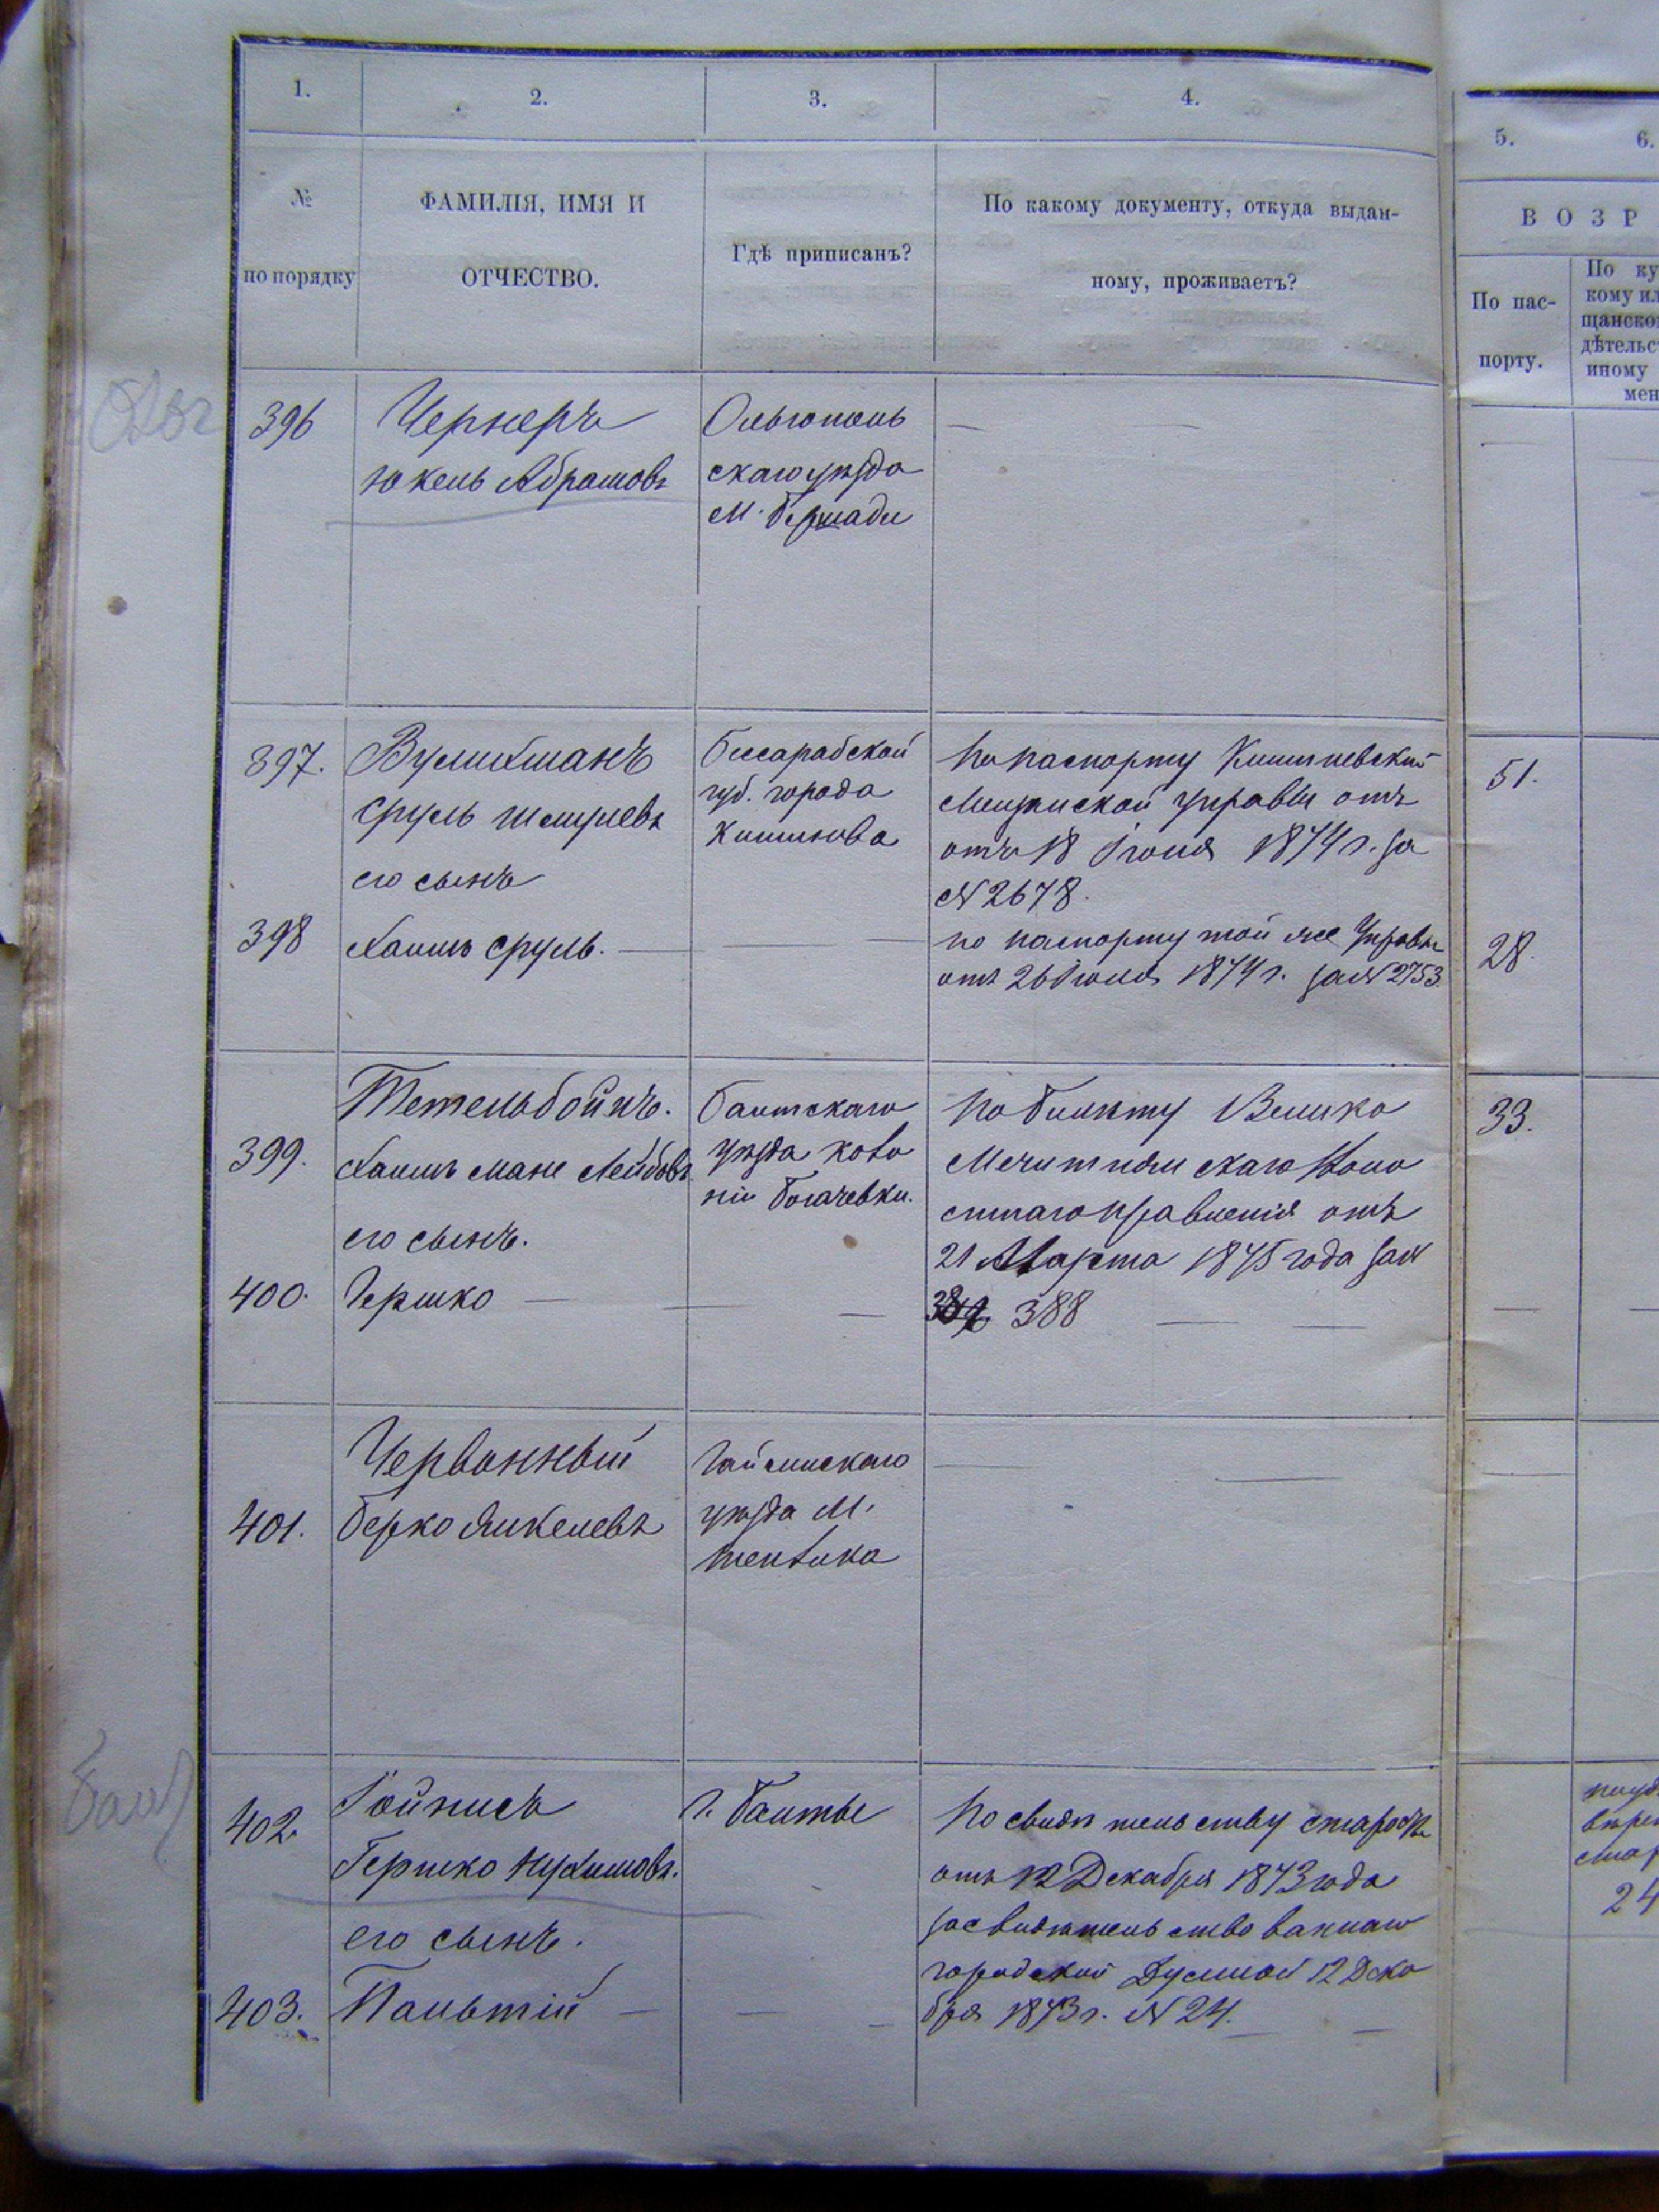 1.
2.
3.
4.
5.
6.
№
по порядку
ФАМИЛІЯ, ИМЯ И
ОТЧЕСТВО.
Гдѣ приписанъ?
По какому документу, откуда выдан-
ному, проживаетъ?
ВОЗР
По пас-
порту.
По ку
кому ил
щанско
дѣтельс
иному
мен
396
Чернеръ
Юкель Абрамовъ
Ольгополь
скаго уѣзда
М. Бершади
397.
Вулихманъ
Сруль Шмулевъ
его сынъ
Бессарабской
губ. города
Кишинева
По паспорту Кишиневской
Мещанской управы отъ
отъ 18 Іюля 1874 г. за
№ 2678.
51.
398
Хаимъ Сруль.
по паспорту той же Управы
отъ 26 Іюля 1874 г. за № 2753.
28.
399.
Тетельбоймъ.
Хаимъ Мане Лейбовъ
его сынъ.
Балтскаго
уѣзда коло
ніи Богачевки.
По билету Велико
Мечетнян скаго Воло
стнаго правленія отъ
21 Марта 1875 года за №
388
33.
400.
Гершко
401.
Червонный
Берко Янкелевъ
Гайсинскаго
уѣзда М.
Теплика
402.
Гойхисъ
Гершко Нухимовъ.
его сынъ.
г. Балты
По свидѣ тель ству старосты
отъ 12 Декабря 1873 года
засвидѣтель ство ванному
городской Думой 12 Дека
бря 1873 г. № 24.
24
403.
Пальтій